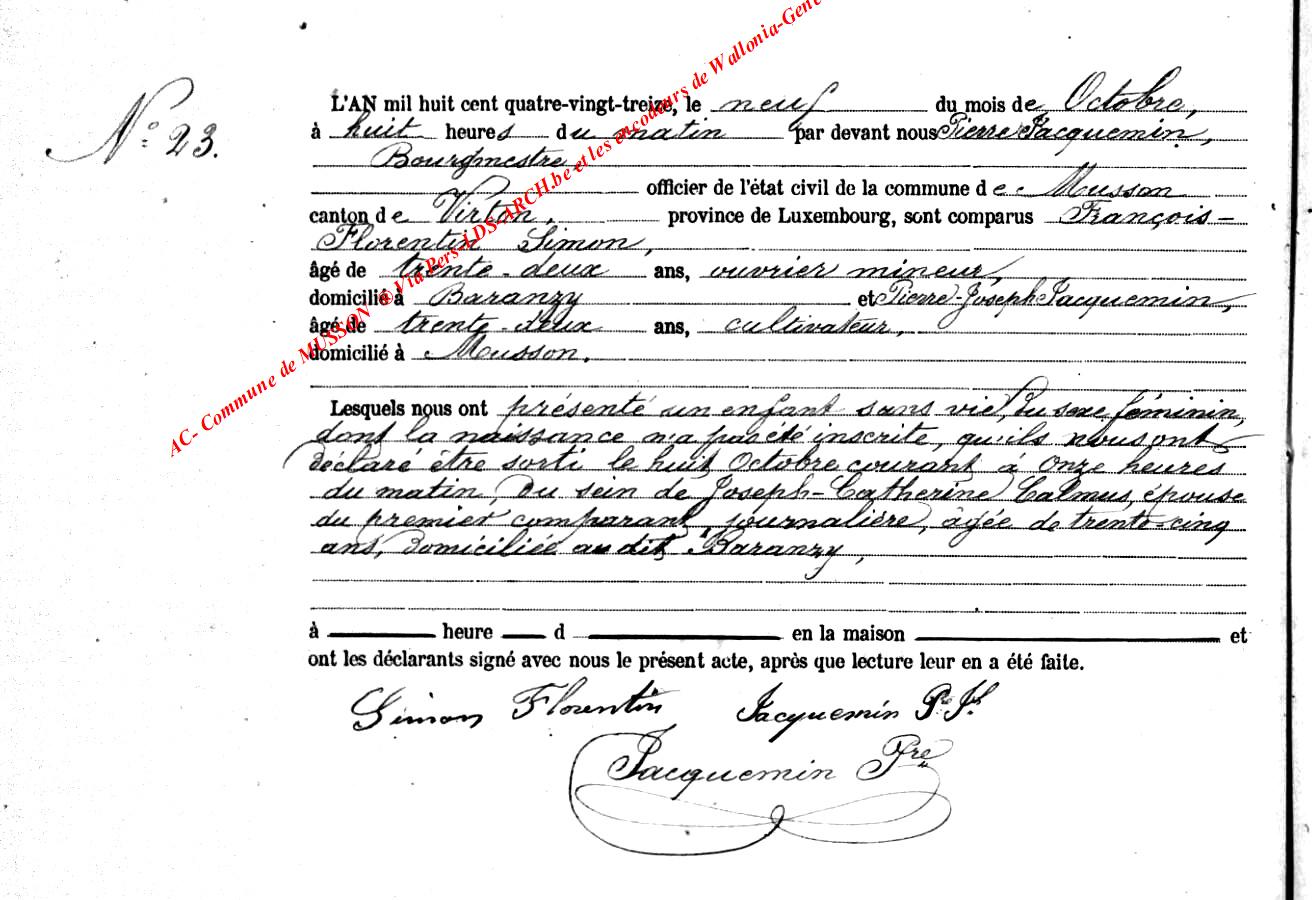 N° 23.
L'AN mil huit cent quatre-vingt-treize, le neuf du mois de Octobre,
à huit heures du matin par devant nous Pierre Jacquemin,
Bourgmestre
officier de l'état civil de la commune de Musson
canton de Virton, province de Luxembourg, sont comparus François-
Florentin Simon,
âgé de trente-deux ans, ouvrier mineur,
domicilié à Baranzy et Pierre-Joseph Jacquemin,
âgé de trente-deux ans, cultivateur,
domicilié à Musson.
Lesquels nous ont présenté un enfant sans vie, du sexe féminin,
dont la naissance n'a pas été inscrite, qu'ils nous ont
déclaré être sorti le huit Octobre courant à onze heures
du matin, du sein de Joseph-Catherine Calmus, épouse
du premier comparant, journalière, âgée de trente-cinq
ans, domiciliée au dit Baranzy,
à heure d en la maison et
ont les déclarants signé avec nous le présent acte, après que lecture leur en a été faite.
Simon Florentin Jacquemin P. Jh
Jacquemin Pre
AC- Commune de MUSSON ® Via Pers-LDS-ARCH.be et les encodeurs de Wallonia-Gene